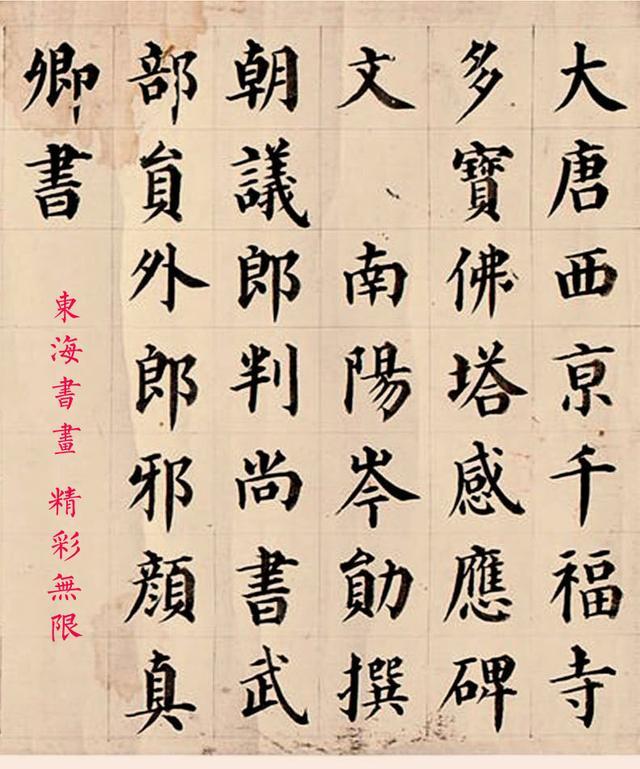 大唐西亰千福寺
多寶佛塔感應碑
文 南陽岑勛撰
朝議郎判尚書武
部員外郎邪顏真
卿書
東海書畫 精彩無限